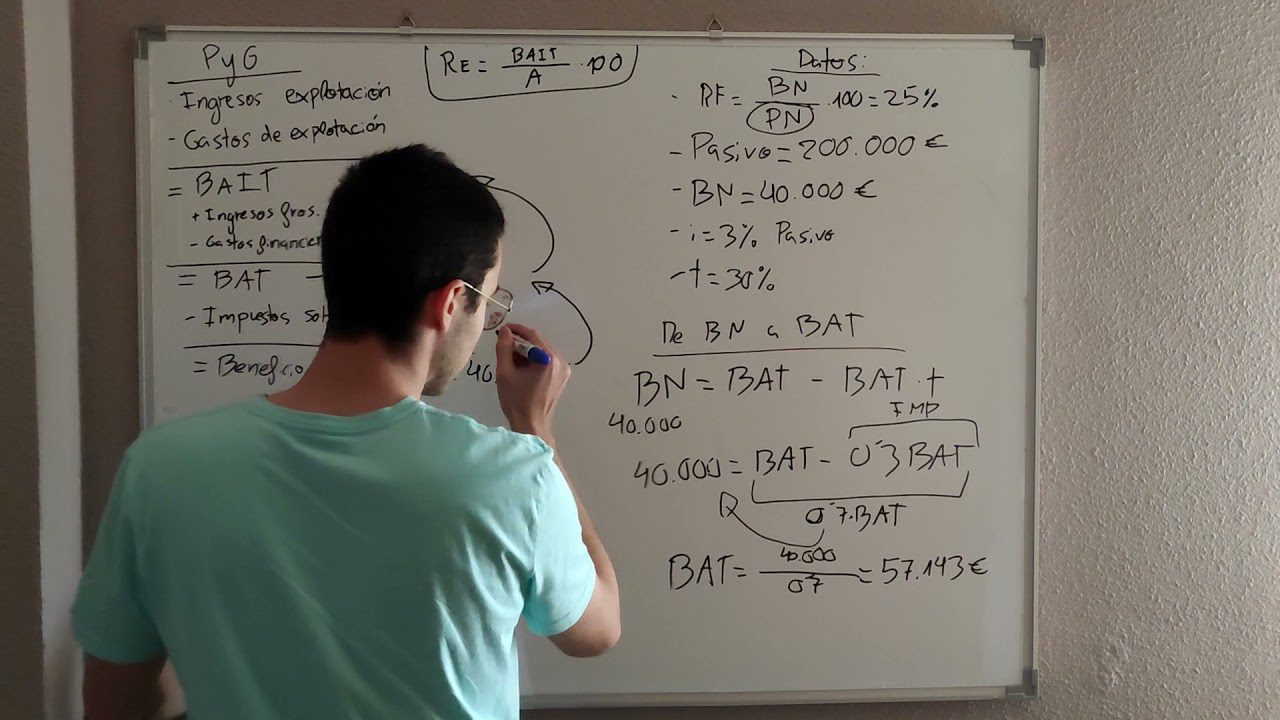 PyG
· Ingresos explotación
- Gastos de explotación
= BAIT
+ Ingresos fros.
- Gastos financier
= BAT -
- Impuestos
= Beneficio
40.
RE = BAIT / A · 100
Datos:
- RF = BN / PN · 100 = 25%
- Pasivo = 200.000 €
- BN = 40.000 €
- i = 3% Pasivo
- t = 30%
De BN a BAT
BN = BAT - BAT · t
40.000
IMP
40.000 = BAT - 0'3 BAT
0'7·BAT
BAT = 40.000 / 0'7 = 57.143 €